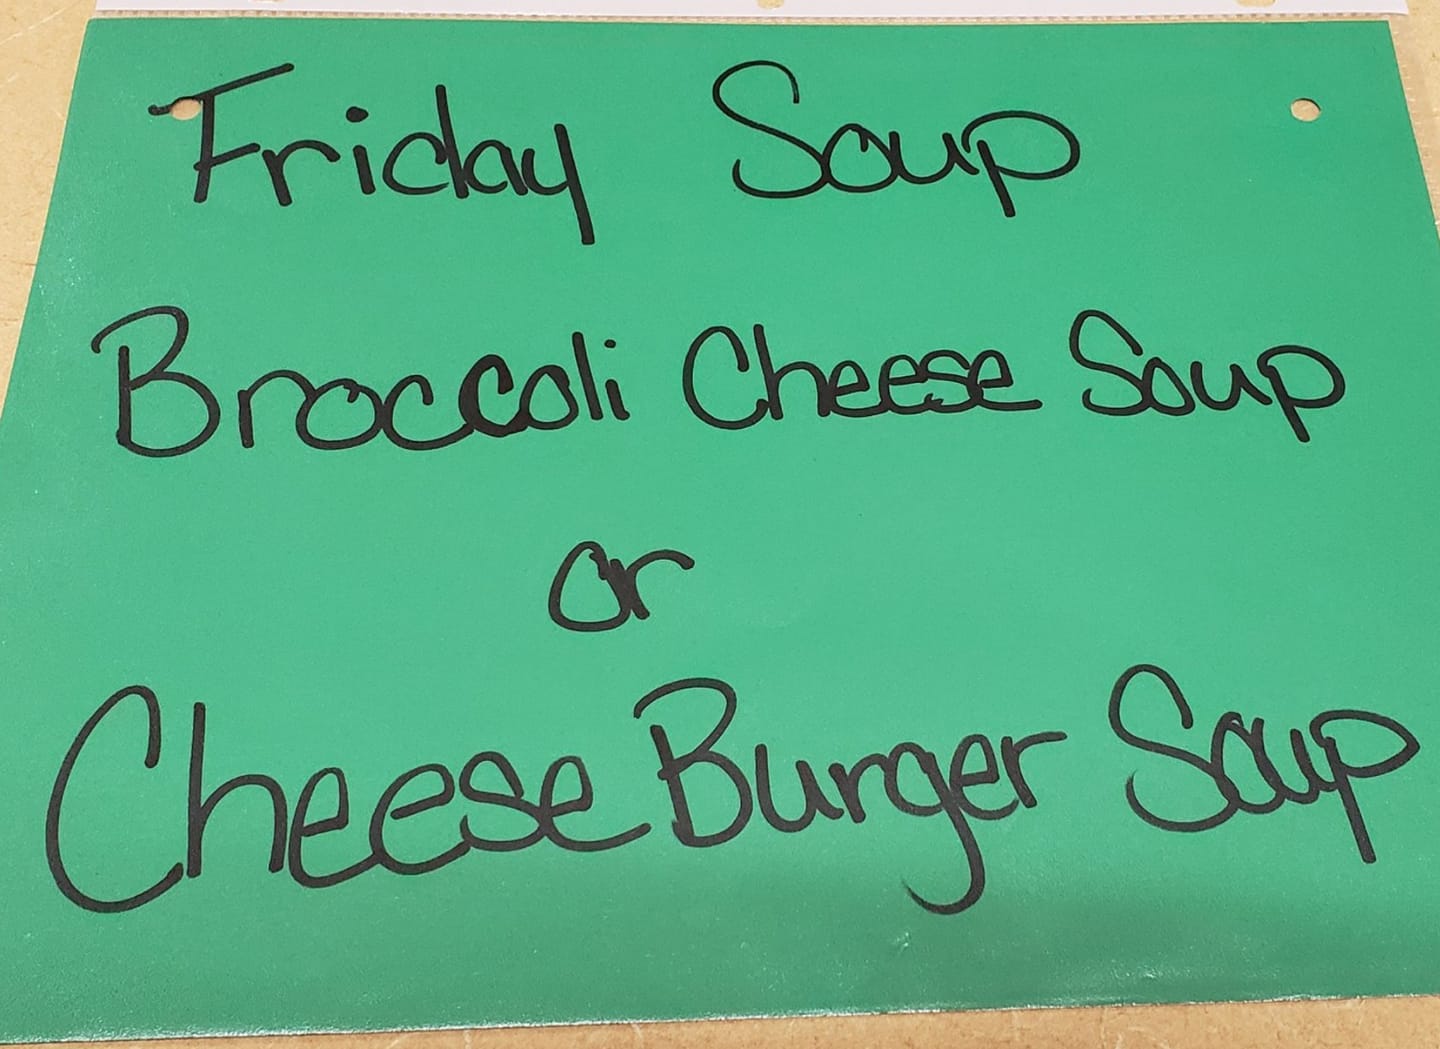 Friday Soup
Broccoli Cheese Soup
or
Cheese Burger Soup